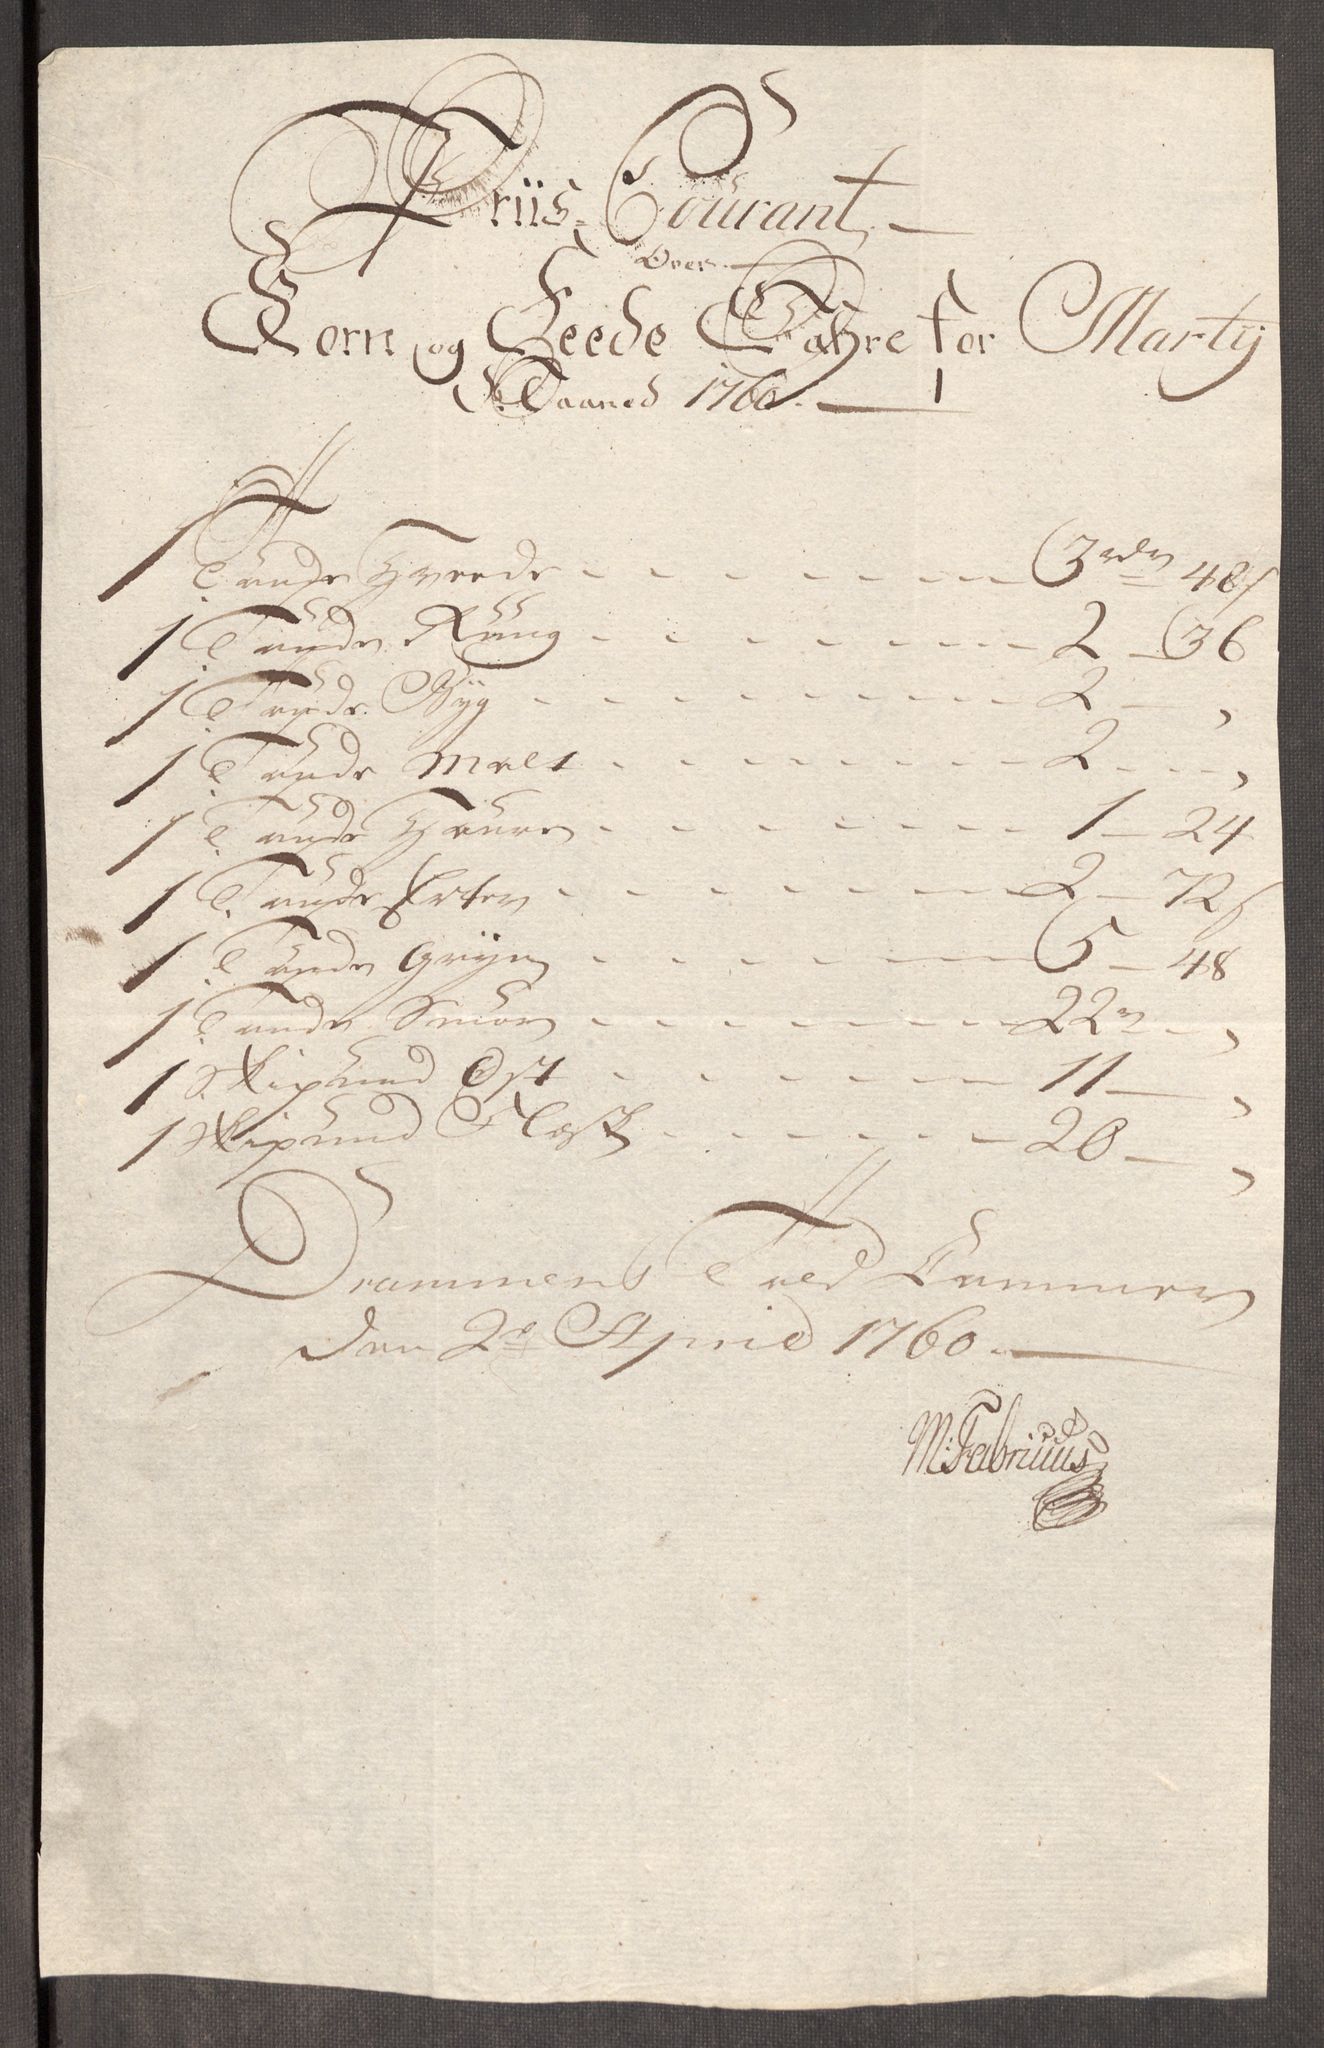 Priis Courant
Over
Korn og Feede Wahre for Marty
Maaned 1760
1 Tønde Hveede 3 rdr 48 s
1 Tønde Rüüg 2 36
1 Tønde Byg 2 "
1 Tønde Malt 2 "
1 Tønde Haure 1 24
1 Tønde Erter 2 72 s
1 Tønde Gryn 5 48
1 Tønde Smør 22 "
1 Skipund Ost 11 "
1 Skipund Flesk 20 "
Drammens Told Cammer
den 2e April 1760
M: Fabritius